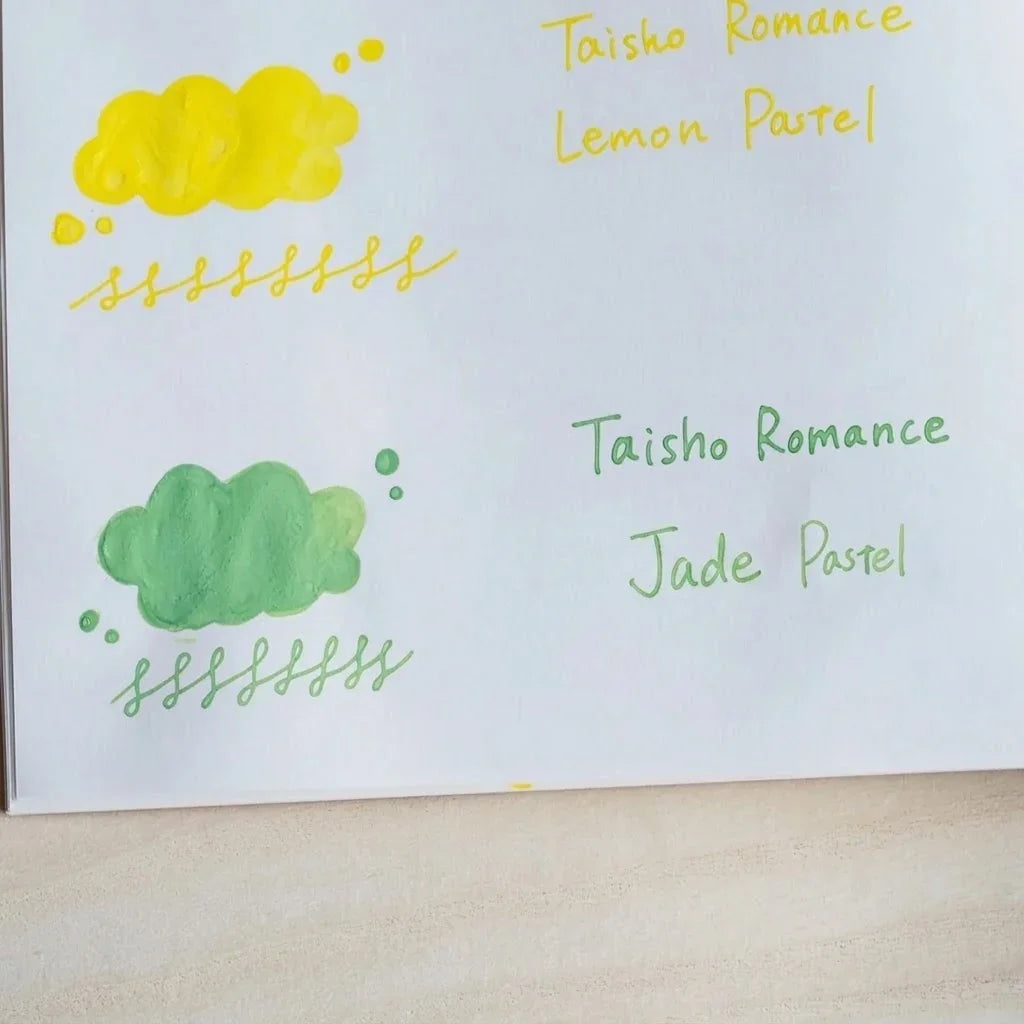 Taisho Romance
Lemon Pastel
Taisho Romance
Jade Pastel